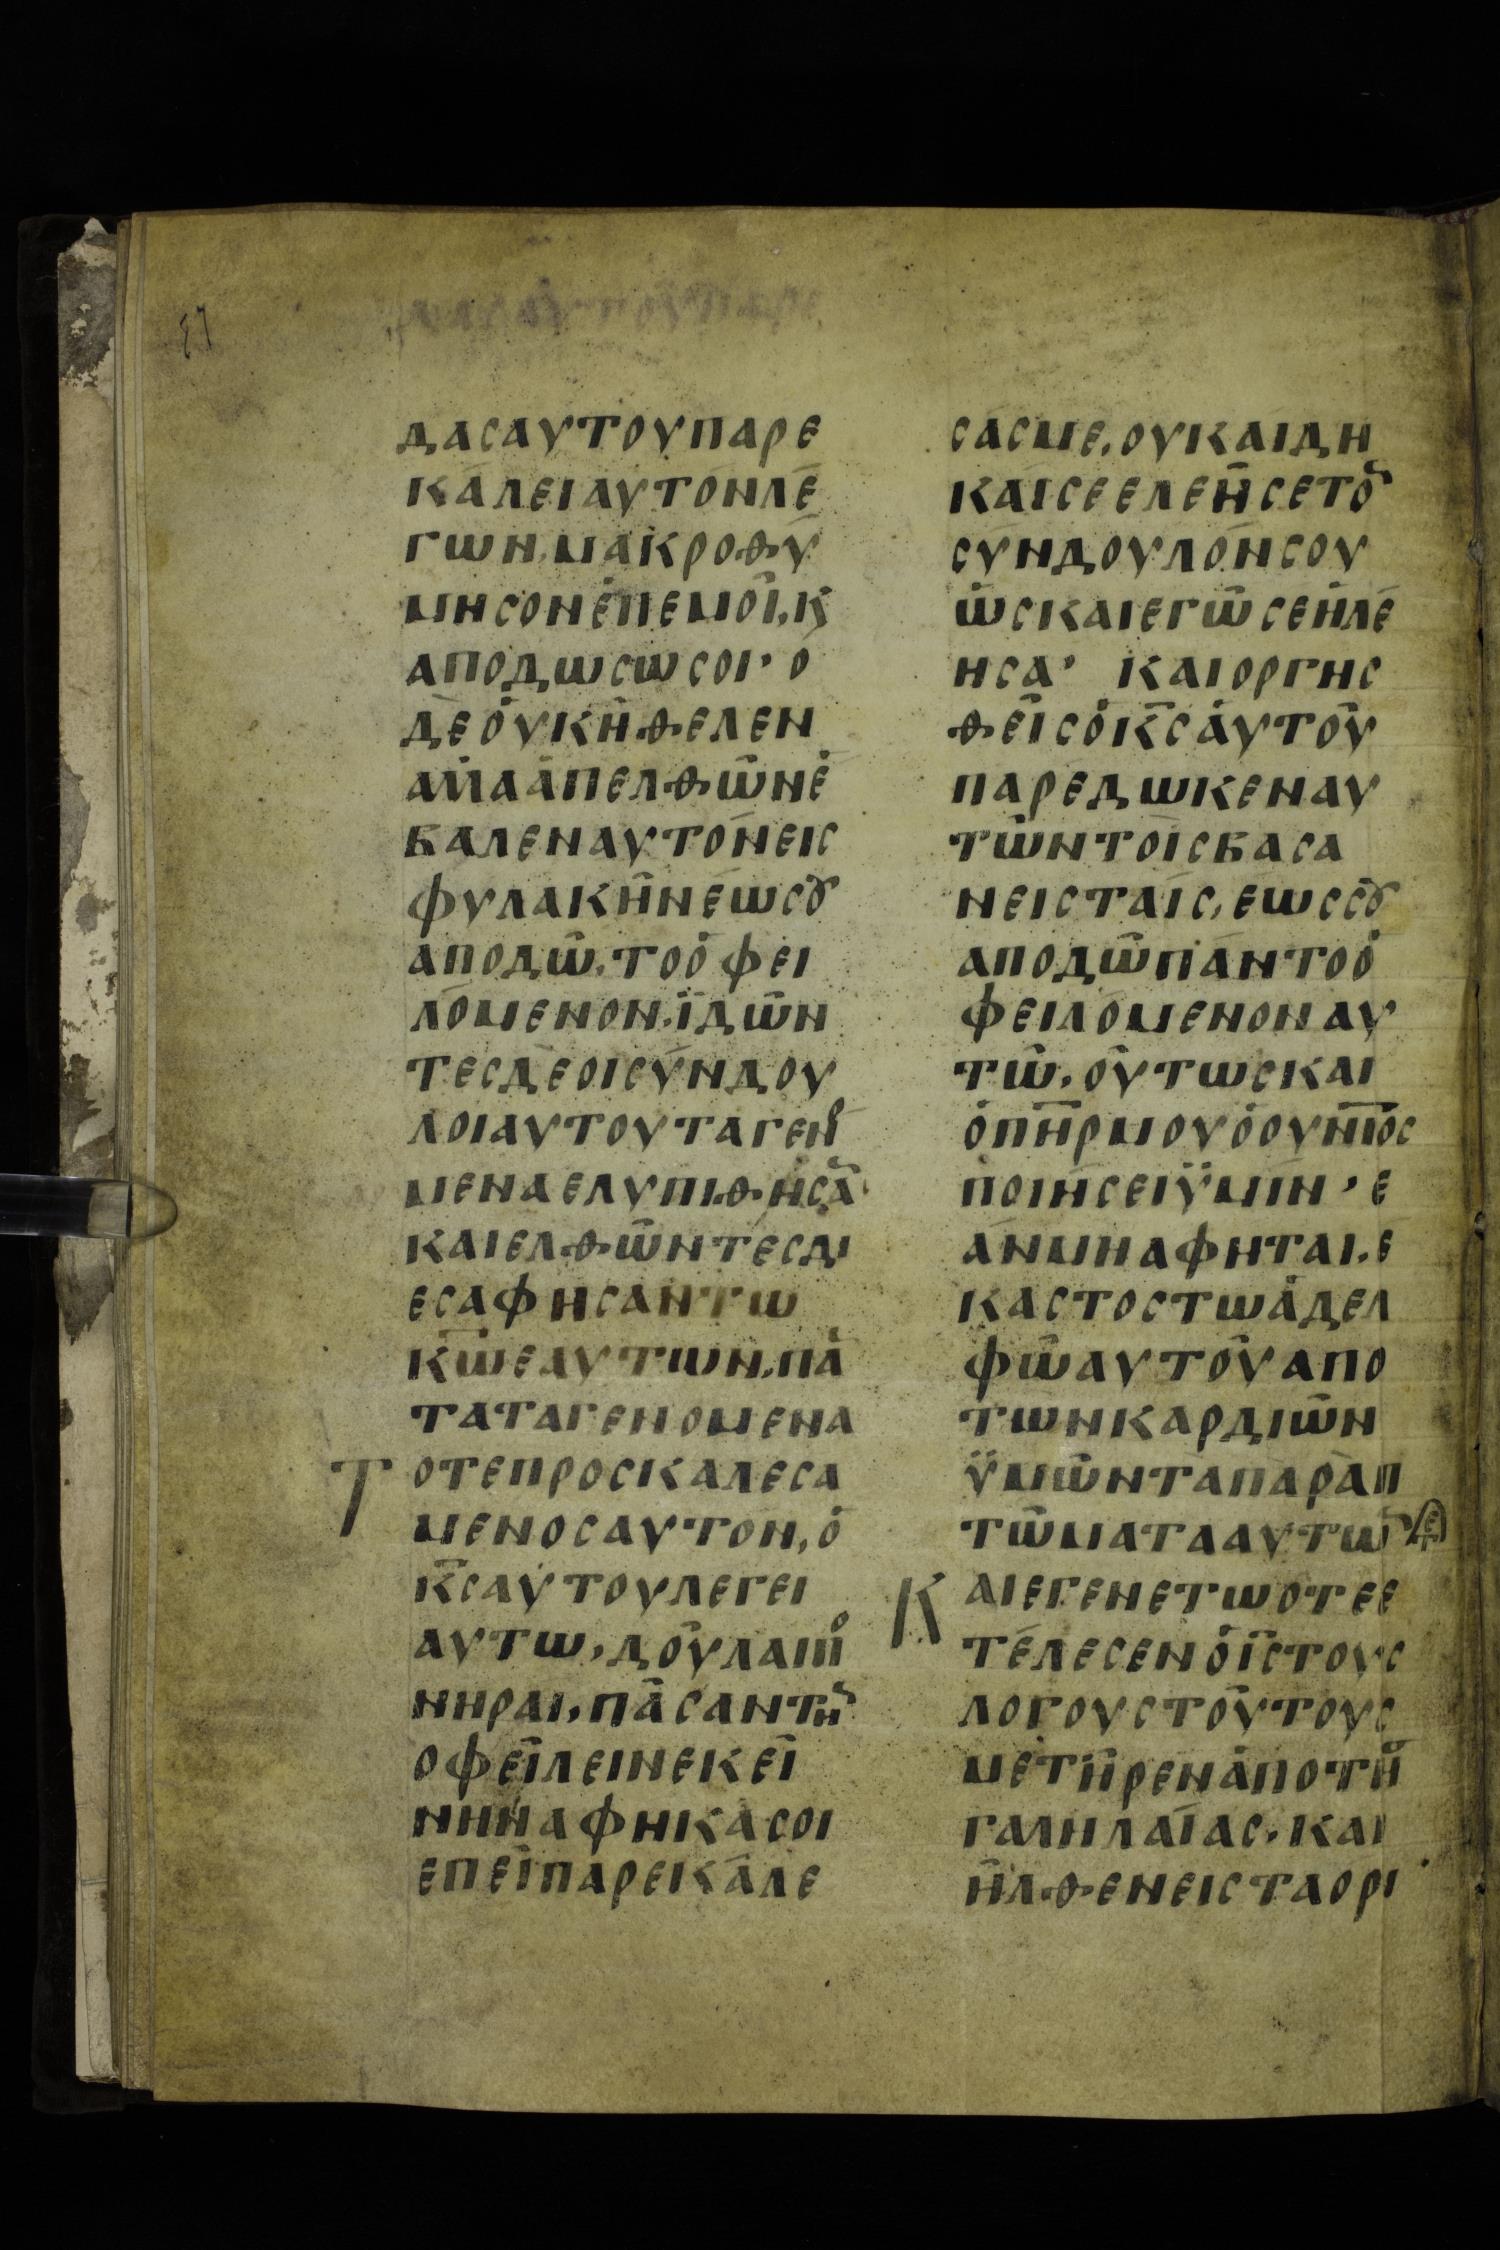 87
ΔΑСΑΥΤΟΥΠΑΡΕ
ΚΑΛΕΙΑΥΤΟΝΛΕ
ΓШΝ,ΜΑΚΡΟΘΥ
ΜΗСΟΝΕΠΕΜΟΙ,Κ
ΑΠΟΔШСШСΟΙ· Ο
ΔΕΟΥΚΗΘΕΛΕΝ
ΑΛΛΑΑΠΕΛΘШΝΕ
ΒΑΛΕΝΑΥΤΟΝΕΙС
ΦΥΛΑΚΗΝΕШСȢ
ΑΠΟΔШ,ΤΟΟΦΕΙ
ΛΟΜΕΝΟΝ,ΪΔШΝ
ΤΕСΔΕΟΙСΥΝΔΟΥ
ΛΟΙΑΥΤΟΥΤΑΓΕΝΟ
ΜΕΝΑΕΛΥΠΙΘΗСΑ
ΚΑΙΕΛΘШΝΤΕСΔΙ
ΕСΑΦΗСΑΝΤШ
Κ̅Ш̅ΕΑΥΤШΝ,ΠΑ
ΤΑΤΑΓΕΝΟΜΕΝΑ
ΤΟΤΕΠΡΟСΚΑΛΕСΑ
ΜΕΝΟСΑΥΤΟΝ,Ο
Κ̅С̅ΑΥΤΟΥΛΕΓΕΙ
ΑΥΤШ,ΔΟΥΛΑΙΠΟ
ΝΗΡΑΙ,ΠΑСΑΝΤΗ
ΟΦΕΙΛΕΙΝΕΚΕΙ
ΝΗΝΑΦΗΚΑСΟΙ
ΕΠΕΙΠΑΡΕΙΚΑΛΕ
СΑСΜΕ,ΟΥΚΑΙΔΗ
ΚΑΙСΕΕΛΕΗСΕΤΟ
СΥΝΔΟΥΛΟΝСΟΥ
ШСΚΑΙΕΓШСΕΗΛΕ
ΗСΑ· ΚΑΙΟΡΓΗС
ΘΕΙСΟΚ̅С̅ΑΥΤΟΥ
ΠΑΡΕΔШΚΕΝΑΥ
ΤШΝΤΟΙСΒΑСΑ
ΝΕΙСΤΑΙС,ΕШССȢ
ΑΠΟΔШΠΑΝΤΟΟ
ΦΕΙΛΟΜΕΝΟΝΑΥ
ΤШ,ΟΥΤШСΚΑΙ
ΟΠ̅Η̅Ρ̅ΜΟΥΟΟΥΝΙΟС
ΠΟΙΗСΕΙΫΜΙΝ· Ε
ΑΝΜΗΑΦΗΤΑΙ,Ε
ΚΑСΤΟСΤШΑΔΕΛ
ΦШΑΥΤΟΥΑΠΟ
ΤШΝΚΑΡΔΙШΝ
ΫΜШΝΤΑΠΑΡΑΠ
ΤШΜΑΤΑΑΥΤШ
ΚΑΙΕΓΕΝΕΤШΟΤΕΕ
ΤΕΛΕСΕΝΟΙ̅С̅ΤΟΥС
ΛΟΓΟΥСΤΟΥΤΟΥС
ΜΕΤΗΡΕΝΑΠΟΤΗ
ΓΑΛΗΛΑΙΑС,ΚΑΙ
ΗΛΘΕΝΕΙСΤΑΟΡΙ